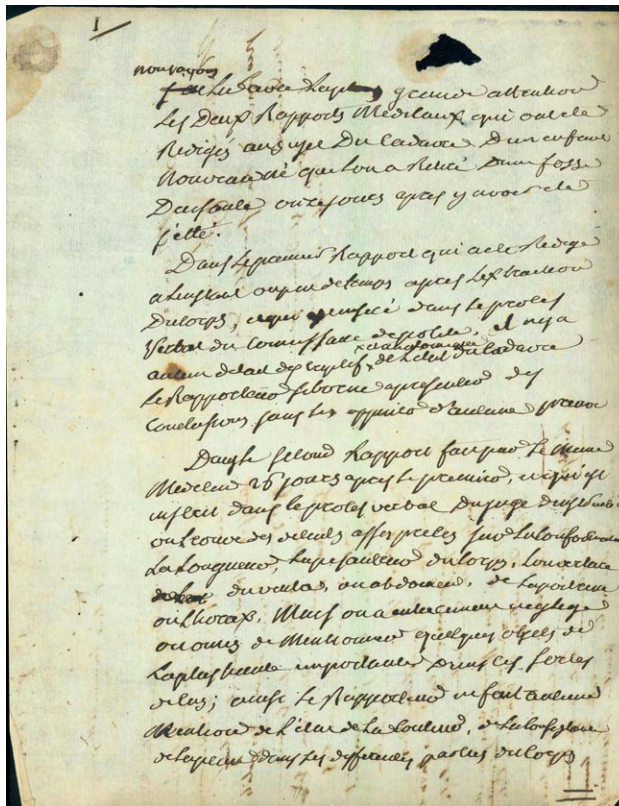 I
nous avons
lu avec la plus grande attention
Les Deux Rapports Médicaux qui ont été
Rédigés au sujet Du Cadavre D'un enfant
Nouveau né que l'on a Retiré D'une fosse
D'aisance onze jours après y avoir été
jetté.
Dans le premier Rapport qui a été Rédigé
a l'instant ou peu de temps après l'extraction
Du Corps, et qui est inséré dans le procès
Verbal du Commissaire de police, il n'y a
aucun détail descriptif de l'état du Cadavre
Le Rapporteur se borne a présenter des
Conclusions sans les appuier d'aucune preuve
Dans le second Rapport fait par le même
Médecin 26 jours après le premier, et qui est
inséré dans le procès verbal Du juge D'instruction
on trouve des détails assez précis sur la
La Longueur, la pesanteur du Corps,
du ventre, ou abdomen, de la poitrine
ou thorax, Mais on a entierement négligé
ou omis de Mentionner quelques objets de
la plus haute importance Dans ces sortes
de cas; ainsi Le Rapporteur ne fait aucune
Mention de l'état de La Couleur, de la
de la peau dans Les différentes parties du Corps